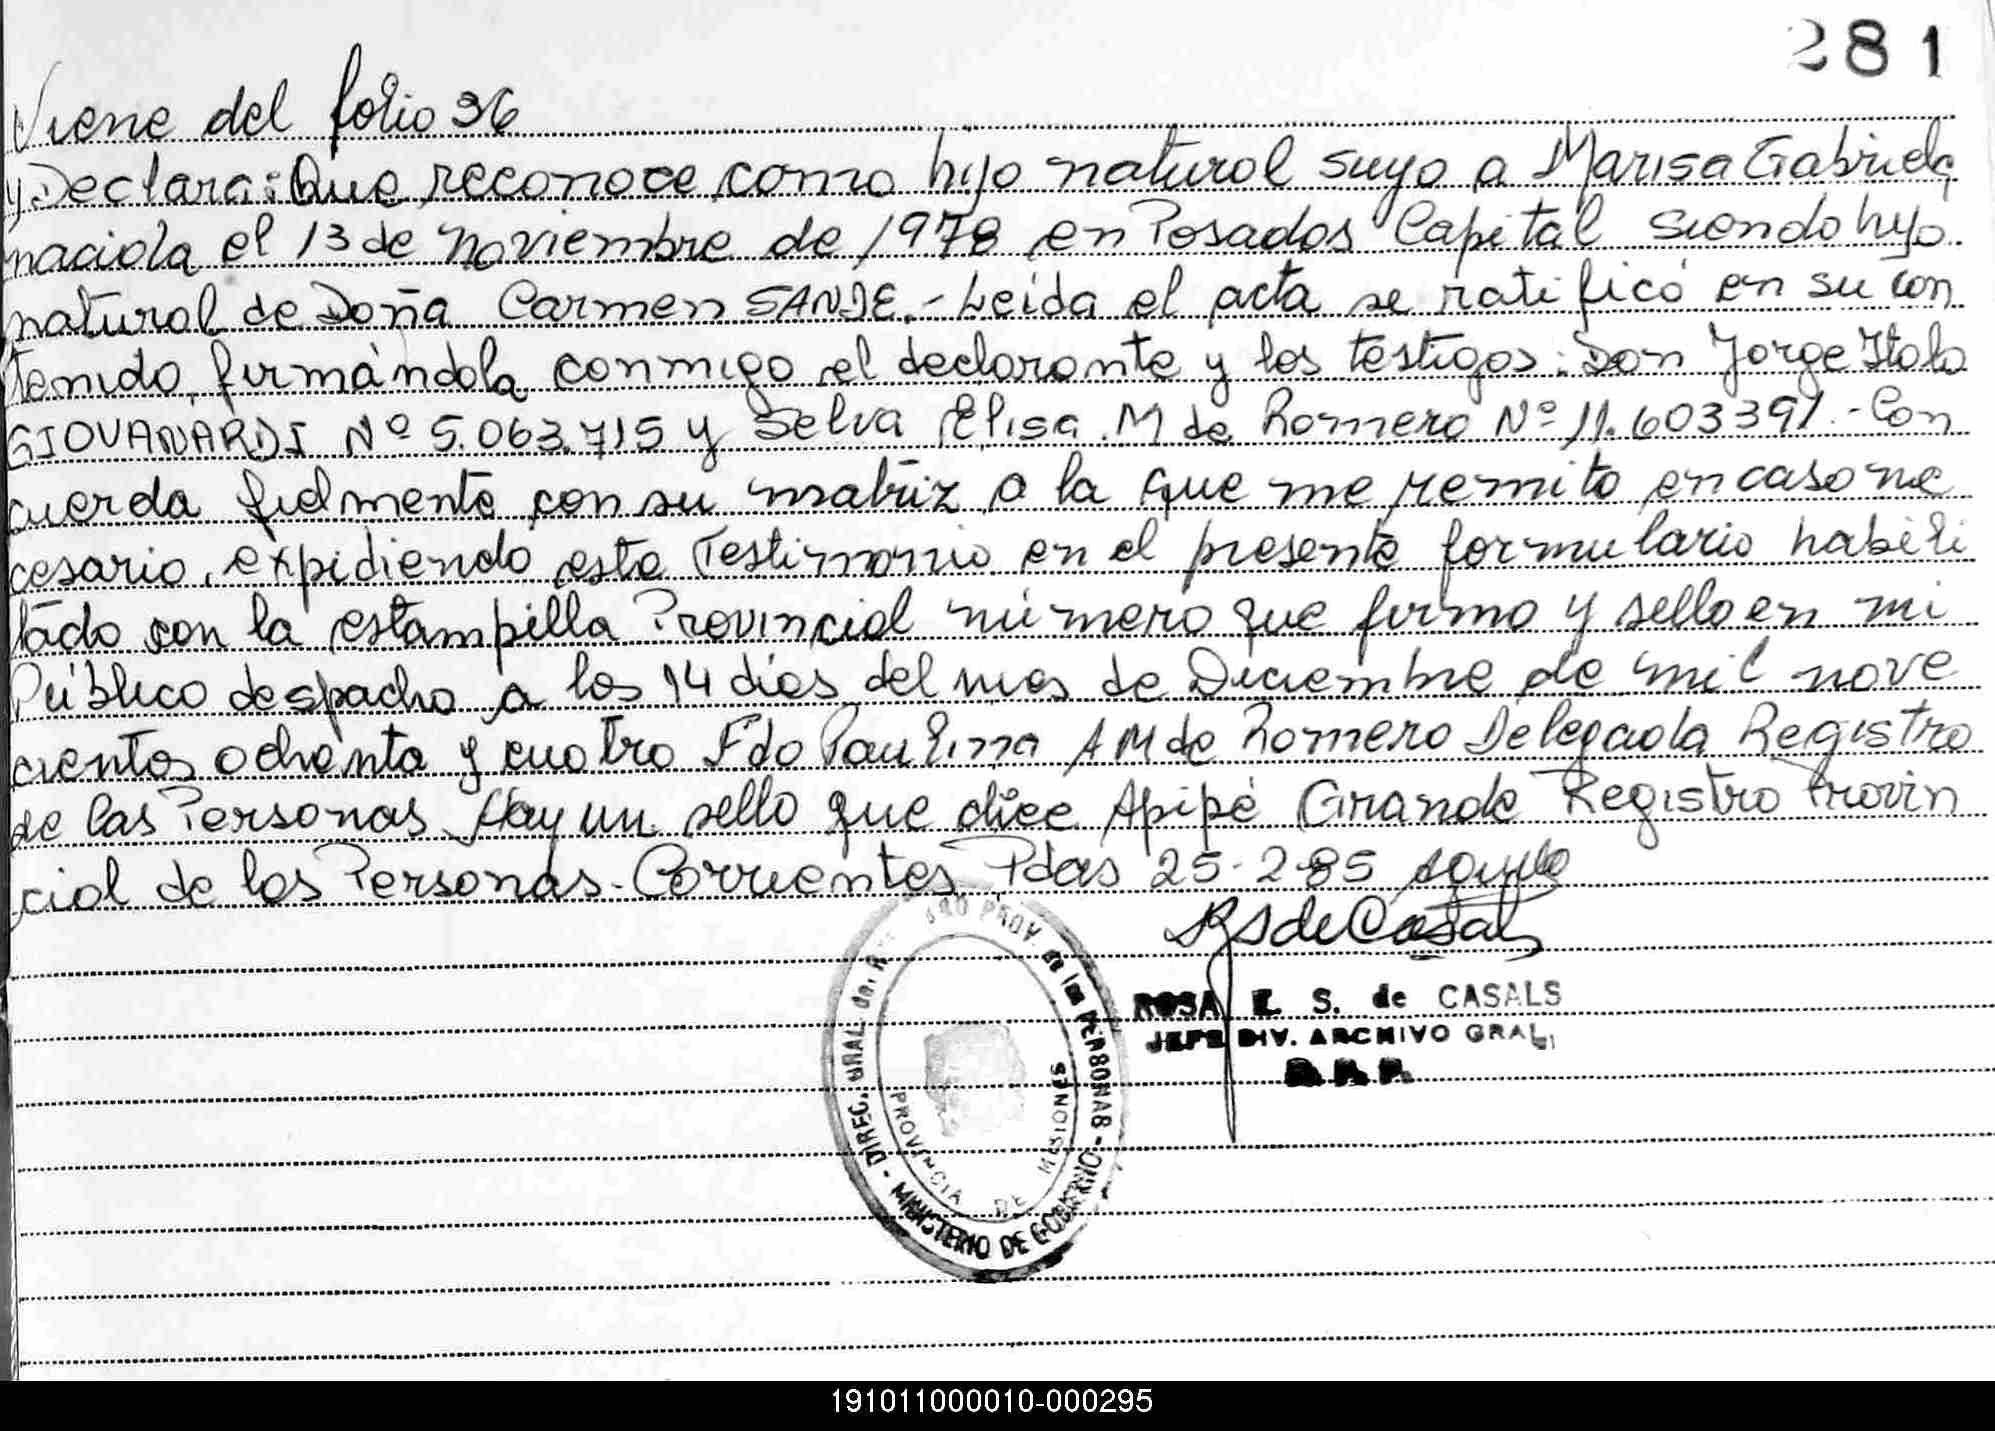 281
Viene del folio 36
y Declara: Que reconoce como hijo natural suyo a Marisa Gabriela,
nacida el 13 de noviembre de 1978 en Posadas Capital siendo hijo
natural de Doña Carmen SANDE.- Leída el acta se ratificó en su con
tenido, firmándola conmigo el declarante y los testigos: Don Jorge Italo
GIOVANARDI Nº 5.063.715 y Selva Elisa M de Romero Nº 11.603391.- Con
cuerda fielmente con su matriz a la que me remito en caso ne
cesario, expidiendo este Testimonio en el presente formulario habili
tado con la estampilla Provincial número que firmo y sello en mi
Público despacho a los 14 días del mes de Diciembre de mil nove
cientos ochenta y cuatro Fdo Paulina A M de Romero Delegada Registro
de las Personas. Hay un sello que dice Apipé Grande Registro Provin
cial de las Personas - Corrientes Pdas 25-2-85
RS de Casals
ROSA E. S. de CASALS
JEFE DIV. ARCHIVO GRAL.
DIREC. GRAL. del PROV. de las PERSONAS - MINISTERIO DE GOBIERNO -
PROVINCIA DE MISIONES
191011000010-000295